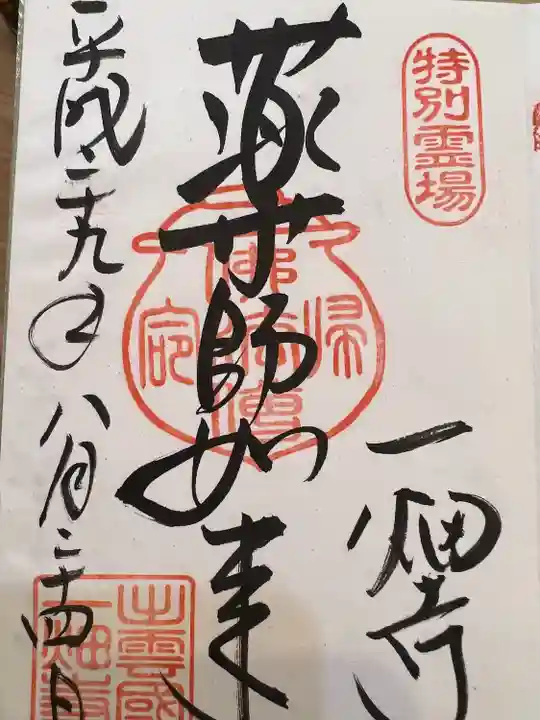 特別霊場
一畑寺
薬師如来
平成二十九年八月二十四日
出雲國
一畑寺